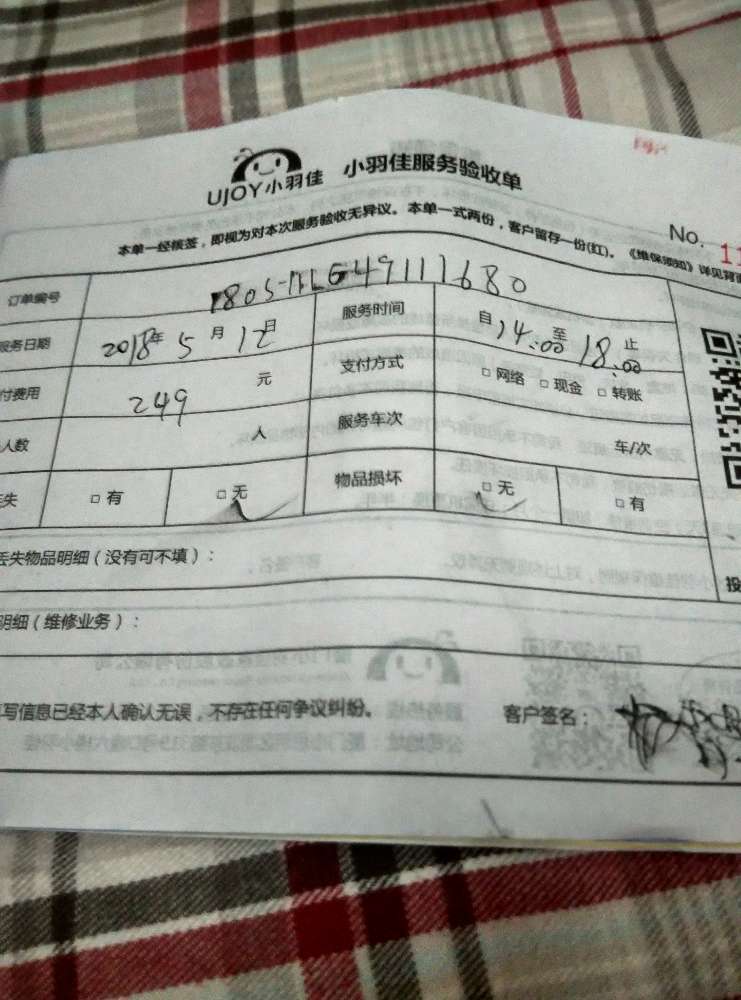 UJOY小羽佳 小羽佳服务验收单
No. 11
本单一经核签，即视为对本次服务验收无异议。本单一式两份，客户留存一份(红)。《维保须知》详见背面
订单编号
服务日期 2018年 5 月 12日 服务时间 自 14:00 至 18:00 止
付费用 249 元 支付方式 □ 网络 □ 现金 □ 转账
人数 人 服务车次 车/次
丢失 □ 有 □ 无 物品损坏 □ 无 □ 有
丢失物品明细（没有可不填）：
明细（维修业务）：
写信息已经本人确认无误，不存在任何争议纠纷。 客户签名：
投